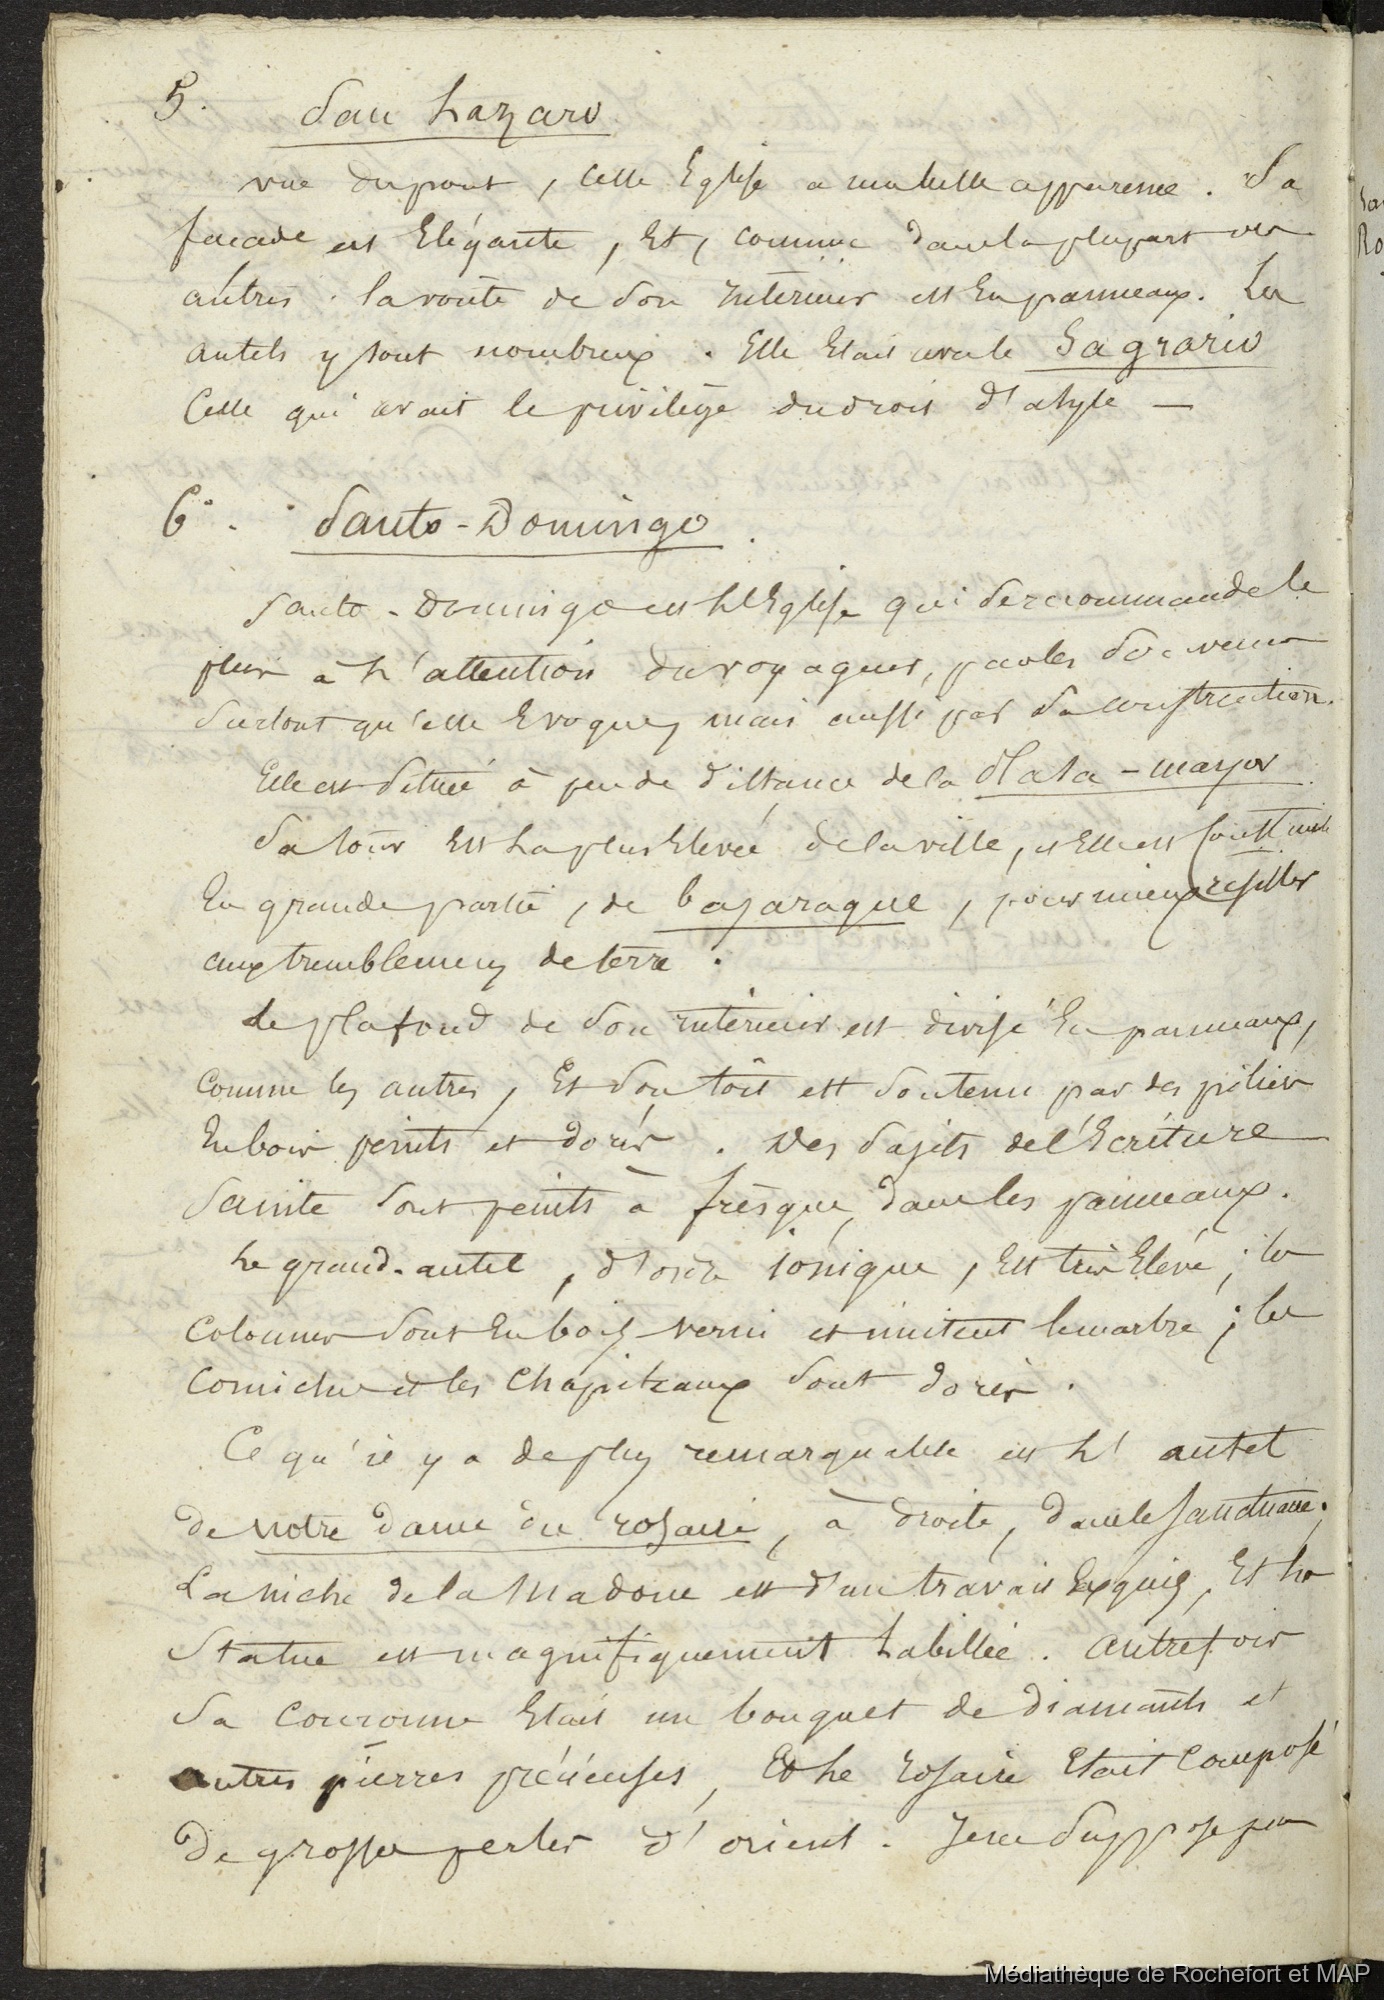 5. San Lazaro
vue du pont, cette Eglise a une belle apparence. Sa
facade est Elégante, Et, comme dans la plupart des
autres, la voûte de son interieur est En panneaux. Les
autels y sont nombreux. Elle Etait avec le Sagrario
Celle qui avait le privilège du droit d'asyle —
6°. Santo-Domingo.
Santo-Domingo est L'Eglise qui se recommande le
plus à L'attention du voyageur, par les souvenirs
surtout qu'elle Evoque, mais aussi par sa construction.
Elle est située à peu de distance de la Plaza-mayor
Sa tour Est La plus Elevée de la ville, et Elle est construite
En grande partie, de bajaraque, pour mieux résister
aux tremblemens de terre.
Le plafond de son interieur est divisé En panneaux,
comme les autres, Et son toit est soutenu par des piliers
En bois peints et dorés. Des sujets de l'Ecriture
Sainte sont peints à fresque, dans les panneaux.
Le grand-autel, d'ordre ionique, Est très Elevé; les
colonnes sont En bois verni et imitent le marbre; les
corniches et les Chapiteaux sont dorés.
Ce qu'il y a de plus remarquable est L'autel
de notre dame du rosaire, à droite, dans le Sanctuaire.
La niche de la Madone est d'un travail Exquis, Et La
Statue est magnifiquement habillée. autrefois
Sa couronne Etait un bouquet de diamants et
autres pierres précieuses, Et Le rosaire Etait Composé
De grosses perles d'orient. Je ne suppose pas
Médiathèque de Rochefort et MAP